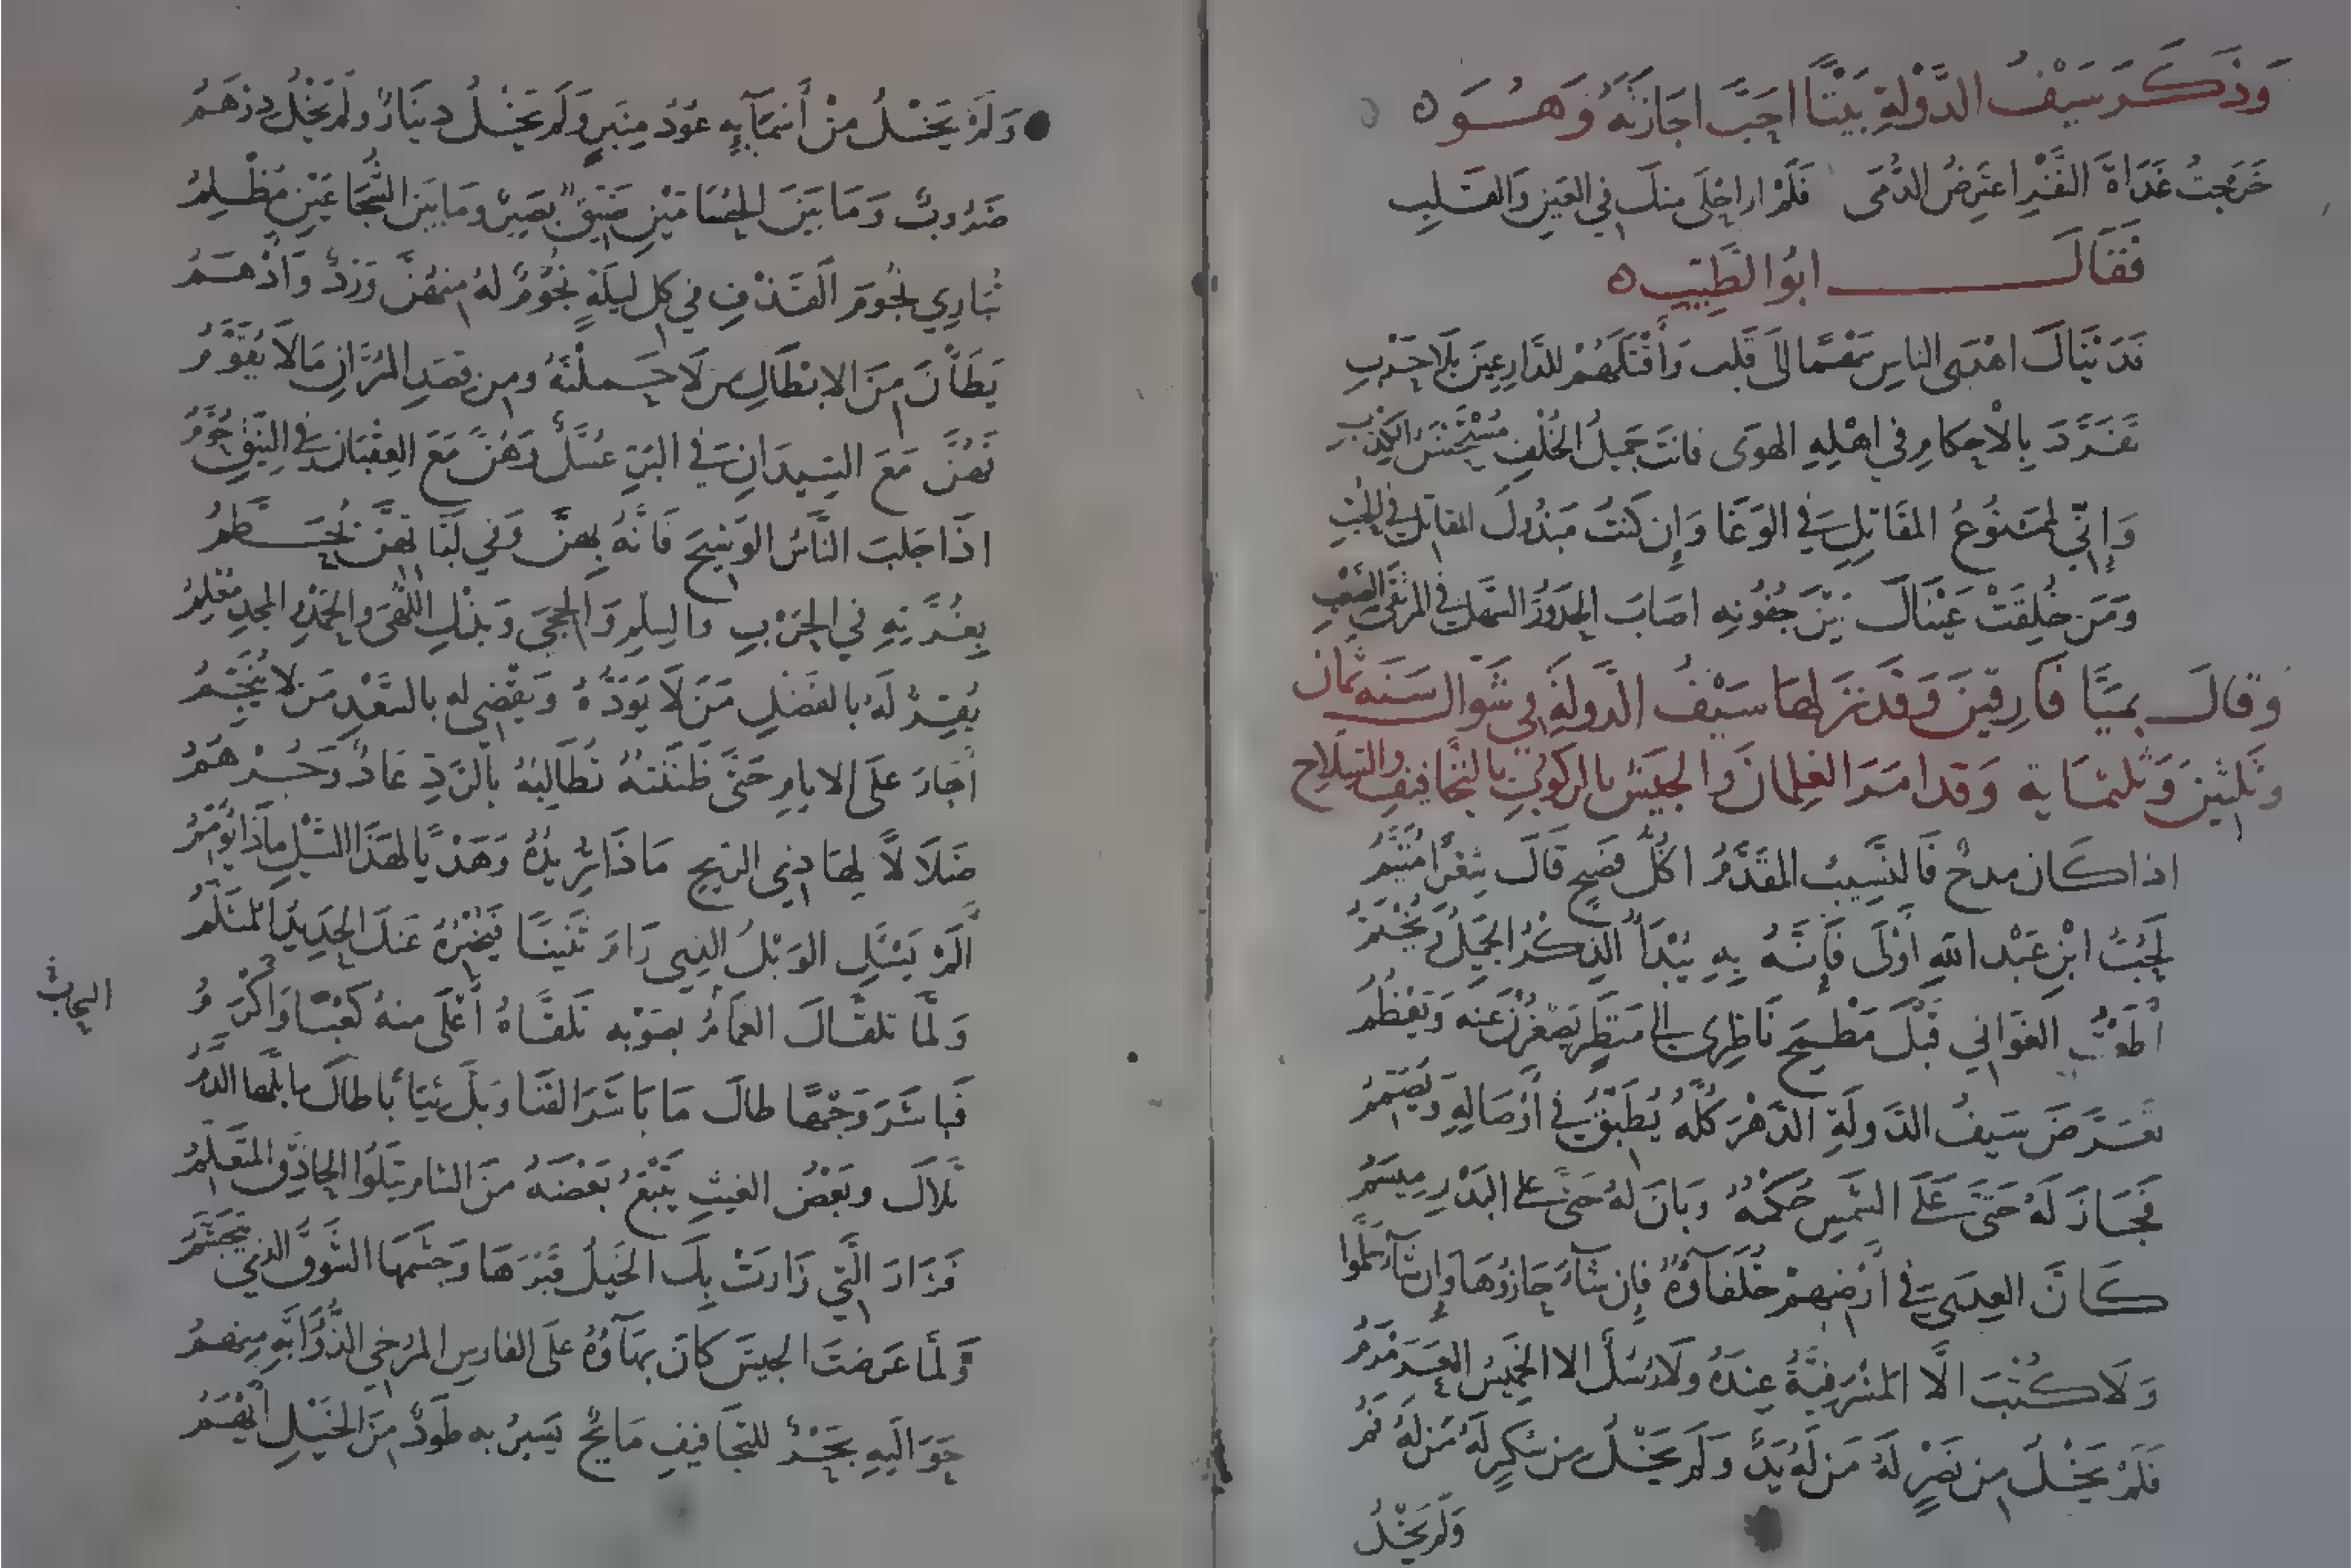 وَذَكَرَ سَيْفُ الدَّوْلةِ بَيْتًا احَبَّ اجَازَتَهُ وَهُوَ ه
خَرَجتُ غَدَاةَ النَّفْرِ اعتَرِضُ الدُّمَى فَلَمْ ار احْلَى منكَ في العَينِ وَالقَلبِ
فَقَالَ ابُو الطَّيِّبِ ه
فَدَيْنَاكَ اهْدَى الناسِ سَهْمًا الَى قَلبِ وَأَقْتَلَهُمْ للدَّارِعِينَ بِلَا حَرْبِ
تَفَرَّدَ بِالْاحكَامِ في اهْلِهِ الهوَى فانتَ جَميلُ الخُلفِ مُسْتَحْسَنُ الكِذْبِ
وَإِنّي لَممْنُوعُ المقَاتِلِ في الوَغَا وَإِن كنتُ مَبْذُولَ المقاتِلِ في الحُبِّ
وَمَن خُلِقَتْ عَيْنَاكَ بَيْنَ جُفُونِهِ اصَابَ الحدُورَ السَّهلَ في المرتَقَى الصَّعْبِ
وَقالَ بمَيَّا فَارِقينَ وَقَد نزَلهَا سَيْفُ الدَّولَةِ في شَوّال سَنَه ثمان
وثلثينَ وَثلثمايةٍ وَقد امَرَ الغِلمانَ وَالجَيشَ بالركُوبِ بالتَّجَافيفِ والسِّلَاحِ
اذا كَان مدحٌ فَالنَّسِيبُ المقَدَّمُ اكُلُّ فَصِيحٍ قَالَ شِعْرًا مُتَيَّمُ
لَحُبُّ ابْنِ عَبْد اللهِ أَوْلَى فَإِنَّهُ بِهِ يُبْدَأُ الذِكْرُ الجَمِيلُ وَيُخْتَمُ
أَطَعْتُ الغَوَاني قَبْلَ مَطْمَحِ نَاظِرِي الى مَنظَرٍ يَصْغُرْنَ عَنه وَيَعْظُمُ
تعَرَّضَ سَيفُ الدَّولَةِ الدَّهْرَ كُلَّهُ يُطَبِّقُ في أَوْصَالِهِ وَيُصَمِّمُ
فَجَازَ لَهُ حَتَّى عَلَى الشَّمسِ حُكْمُهُ وَبَانَ لهُ حَتَّى على البَدْرِ مِيسَمُ
كَانَّ العِدَى في أَرْضِهِمْ خُلَفَآؤُهُ فإِن شَآءَ حَازُوهَا وَإِن شَآءَ سَلَّمُوا
وَلَا كُتْبَ الَّا المَشْرَفِيَّةُ عِندَهُ وَلَا رُسُلٌ الا الخَمِيسُ العَرَمْرَمُ
فَلَمْ يَخْلُ مِن نَصْرٍ لَهُ مَن لَهُ يَدٌ وَلَم يَخْلُ مِن شكرٍ لَهُ مَن لَهُ فَمُ
وَلَم يَخْلُ
وَلَمْ يَخْلُ مِنْ أَسْمَآئِهِ عُودُ مِنبَرٍ وَلَم يَخْلُ دِينَارٌ وَلَم يَخْلُ دِرْهَمُ
ضَرُوبٌ وَمَا بَيْنَ الحُسَامَيْنِ ضَيِّقٌ بَصِيرٌ وَمَا بَيْنَ الشُّجَاعَيْنِ مُظْلِمُ
تُبَارِي نُجُومَ القَذْفِ في كل لَيلَةٍ نُجُومٌ لَهُ مِنهُنَّ وَرْدٌ وَأَدْهَمُ
يَطَأْنَ مِنَ الابْطَالِ مَن لَا حَمَلْنَهُ ومِن قِصَدِ المُرَّانِ مَالَا يُقَوَّمُ
فَهُنَّ مَعَ السِّيدَانِ في البَرِّ عُسَّلٌ وَهُنَّ مَعَ العِقبَانِ في النِّيقِ حُوَّمُ
اذَا جَلبَ النَّاسُ الوَشِيجَ فَانَّهُ بِهنَّ وَفي لَبَّاتِهنَّ يُحَطَّمُ
بِغُرَّتِهِ في الحَرْبِ والسِّلمِ وَالحِجَى وَبَذْلِ اللُّهَى وَالحَمْدِ وَالمَجدِ مُعْلِمُ
يُقِرُّ لَهُ بالفَضْلِ مَن لَا يَوَدُّهُ وَيَقْضِي له بالسَّعْدِ مَن لَا يُنَجِّمُ
أَجَارَ عَلَى الايامِ حَتَّى ظَنَنْتُهُ تُطَالِبُهُ بالرَّدِّ عَادٌ وَجُرْهَمُ
ضَلَالًا لِهَاذِي الرِّيحِ مَاذَا تُرِيدُهُ وَهَدْيًا لِهَذَا السَّيْلِ مَاذَا يُؤَمِّمُ
أَلَمْ يَسْئَلِ الوَبْلُ الذِي رَامَ ثَنْيَنَا فَيُخْبِرَهُ عَنكَ الحَدِيدُ المُثَلَّمُ
وَلَمَّا تَلقَّاكَ الغَمَامُ بصَوْبِه تَلَقَّاهُ أَعْلَى مِنهُ كَعْبًا وَأَكْرَمُ
فَبَاشَرَ وَجْهًا طَالَ مَا بَاشَرَ القَنَا وَبَلَّ ثِيَابًا طَالَ مَا بلَّهَا الدَّمُ
تَلَاكَ وبَعْضُ الغَيثِ يَتْبَعُ بَعْضَهُ مِنَ الشامِ يَتلُوا الحَاذِقَ المُتَعَلِّمُ
فَزَارَ الَّتي زَارَتْ بِكَ الخَيلُ قَبْرَهَا وَجَشَّمَهَا الشَّوقُ الذِي تَتَجَشَّمُ
وَلَمَّا عَرَضتَ الجَيشَ كَانَ بَهَآؤُهُ عَلَى الفَارِسِ المُرْخِي الذُّؤَابَةِ مِنهُمُ
حَوَالَيهِ بَحْرٌ للتَّجَافِيفِ مَائِجٌ يَسِيرُ بِه طَودٌ مِنَ الخَيْلِ أَيْهَمُ